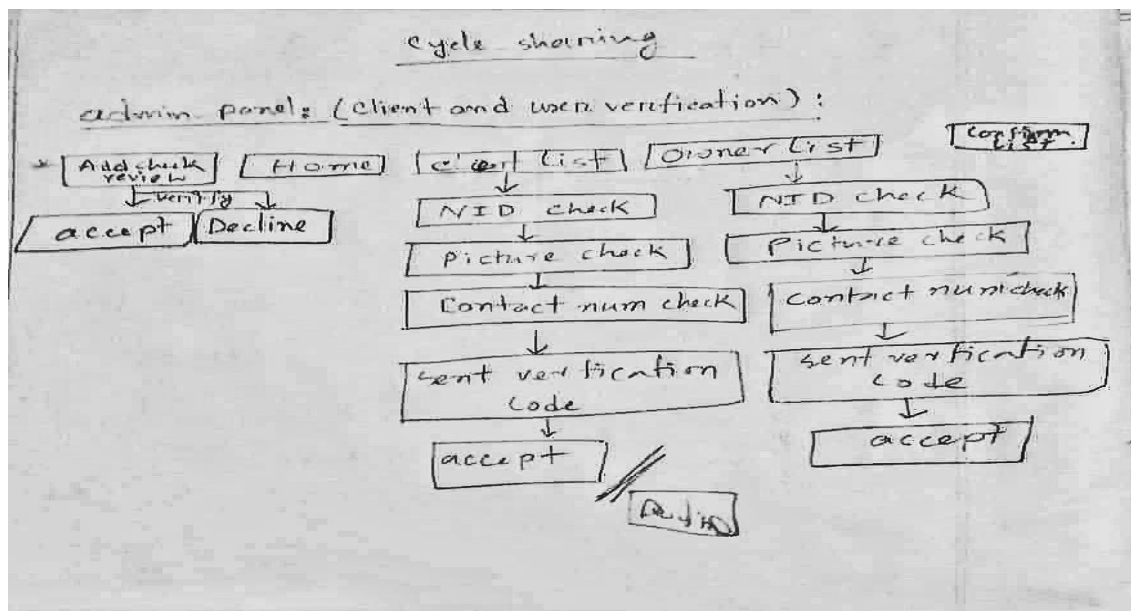 Cycle sharing
admin panel: (Client and user verification):
* Add check review
Home
Client List
Owner List
Confirm List
verifiy
accept
Decline
NID check
Picture check
Contact num check
sent verfication code
accept
NID check
Picture check
Contact num check
sent verfication code
accept